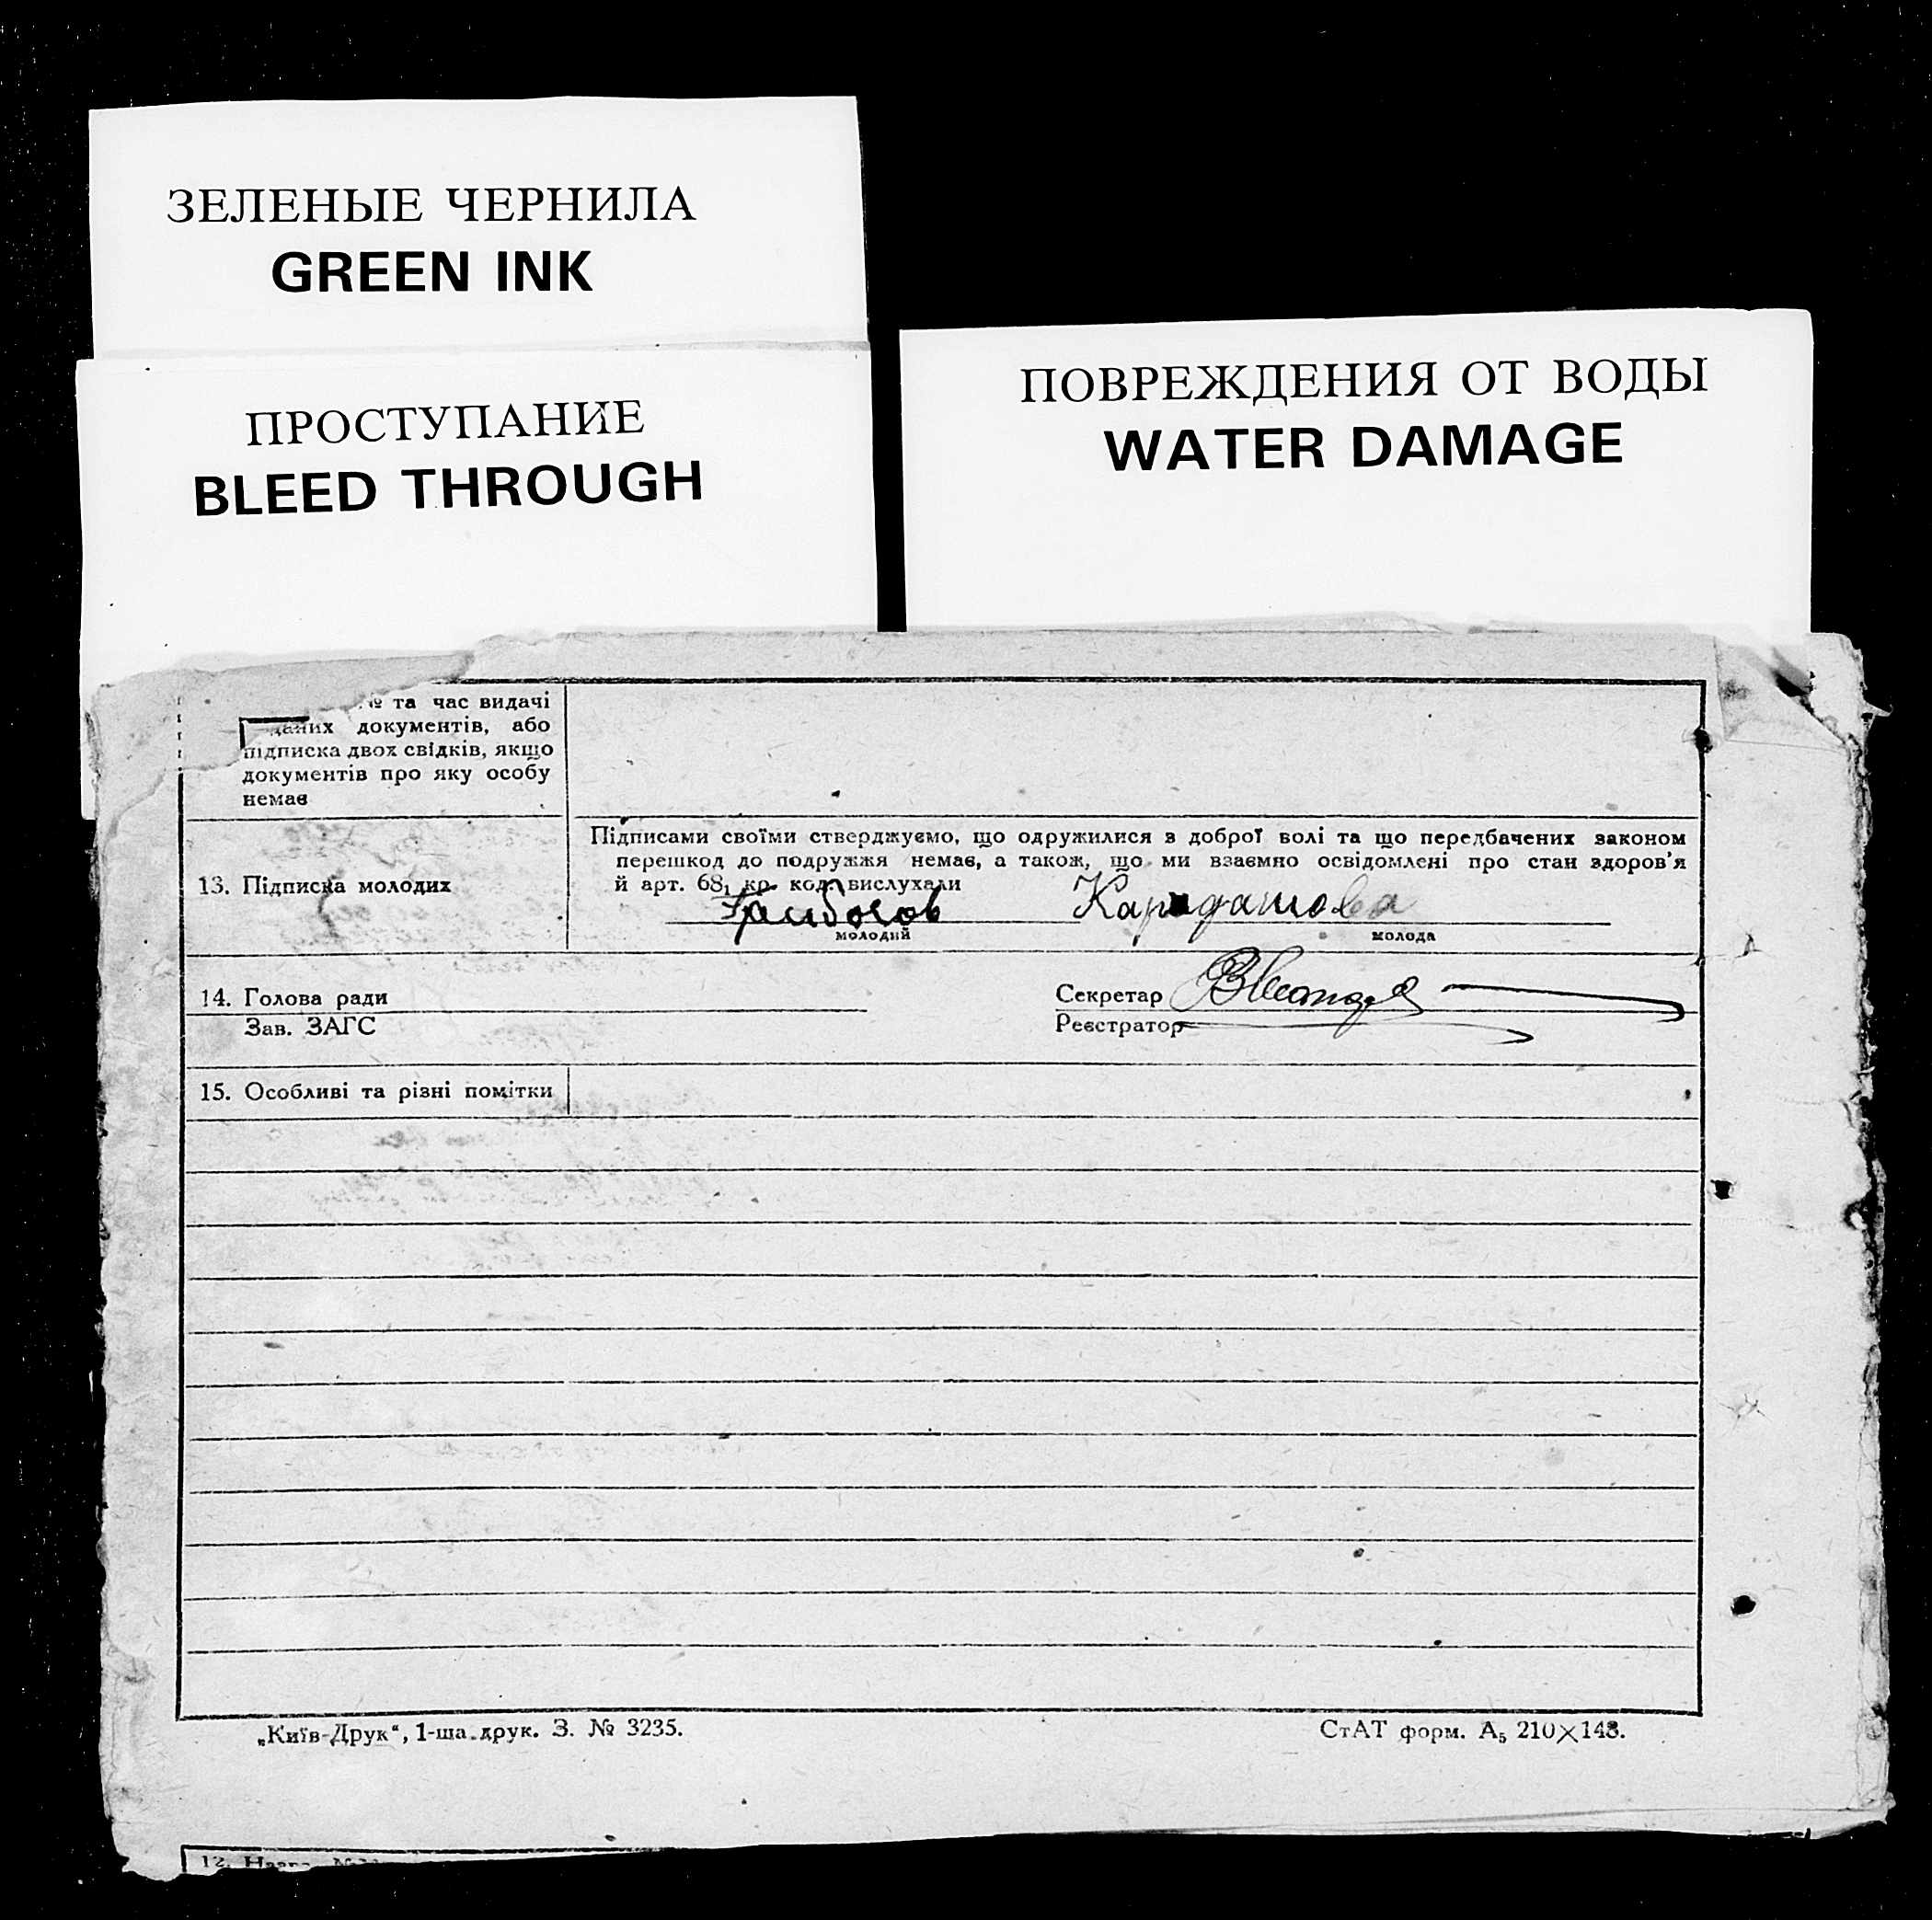 ЗЕЛЕНЫЕ ЧЕРНИЛА
GREEN INK
ПРОСТУПАНИЕ
BLEED THROUGH
ПОВРЕЖДЕНИЯ ОТ ВОДЫ
WATER DAMAGE
№ та час видачі
даних документів, або
підписка двох свідків, якщо
документів про яку особу
немає
13. Підписка молодих
Підписами своїми стверджуємо, що одружилися з доброї волі та що передбачених законом
перешкод до подружжя немає, а також, що ми взаємно освідомлені про стан здоров'я
й арт. 68₁ кр. код. вислухали
молодий
молода
14. Голова ради
Зав. ЗАГС
Секретар
Реєстратор
15. Особливі та різні помітки
„Київ-Друк“, 1-ша друк. З. № 3235.
СтАТ форм. А₅ 210×148.
12.